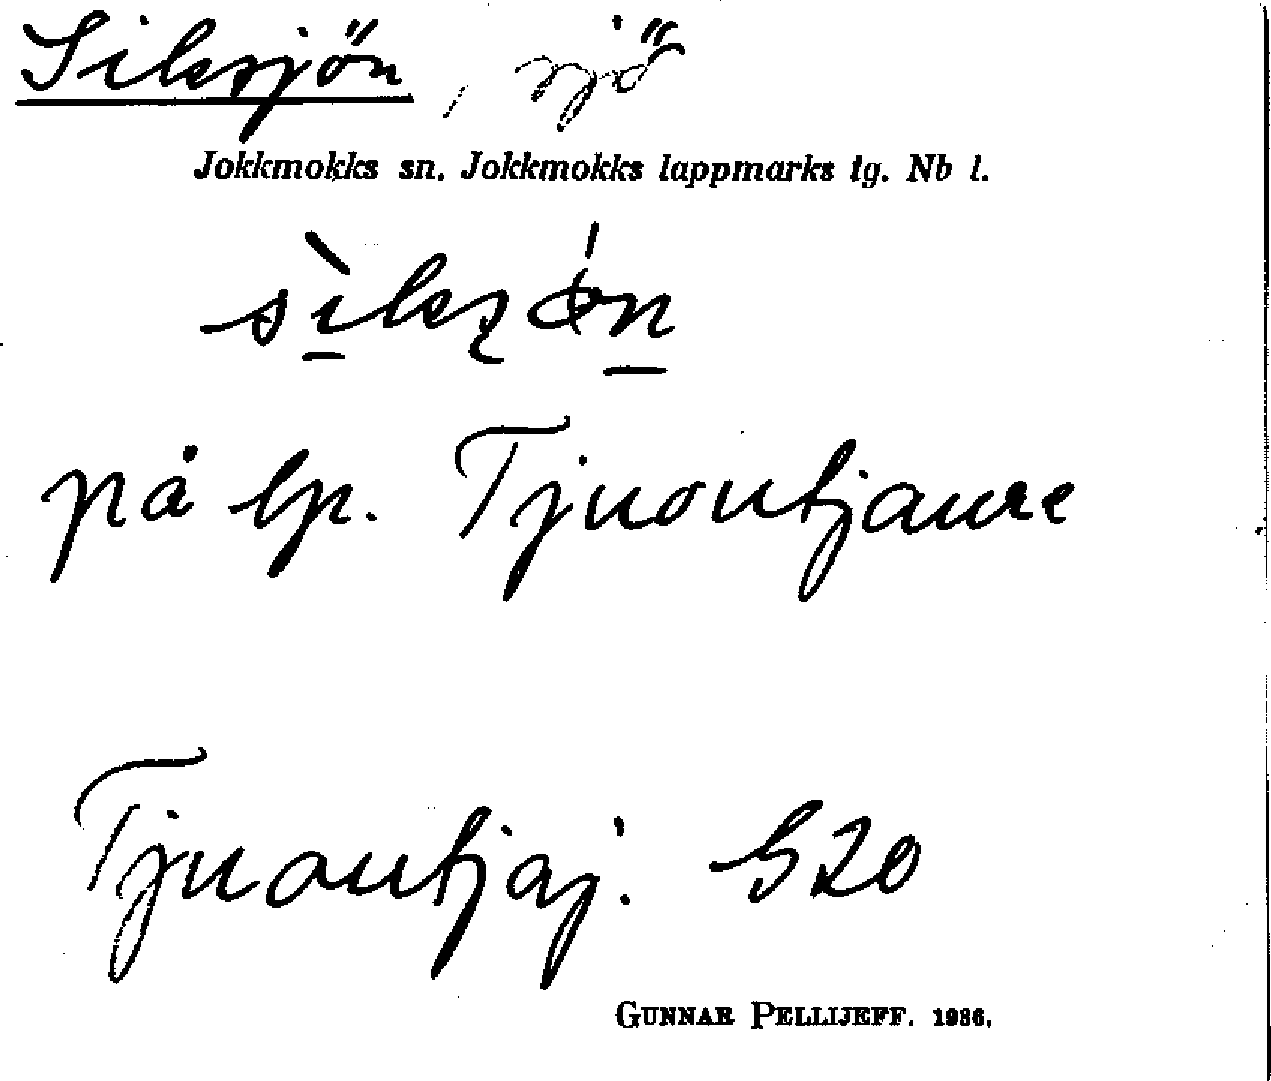 Siksjön, sjö
Jokkmokks sn. Jokkmokks lappmarks tg. Nb l.
på lp. Tjuoutjaure
Tjuoutjaj. S20
GUNNAR PELLIJEFF. 1936.